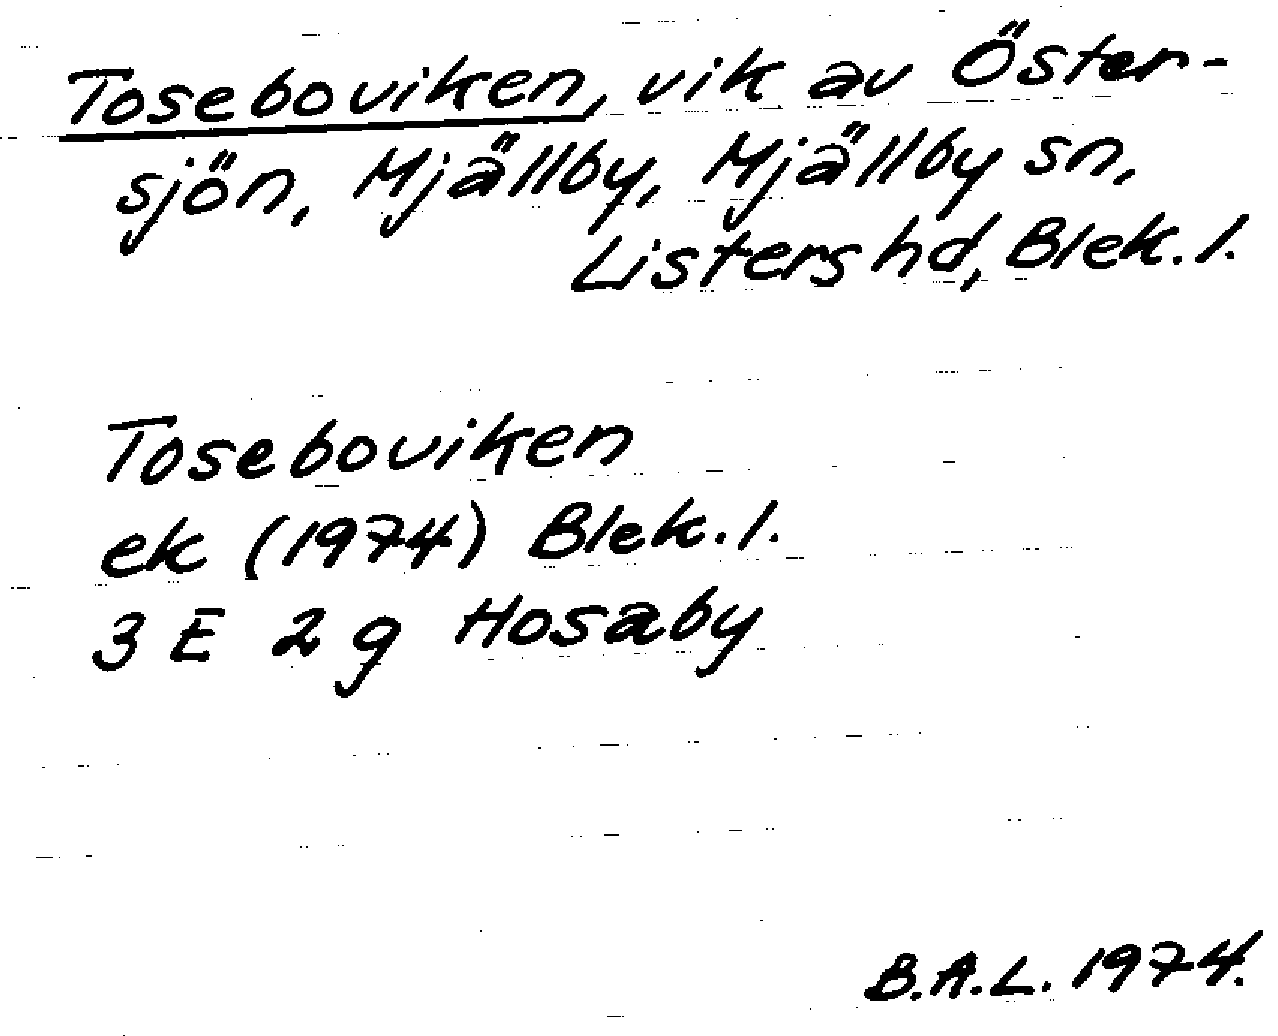 Toseboviken, vik av Öster-
sjön, Mjällby, Mjällby sn,
Listers hd, Blek. l.
Toseboviken
ek (1974) Blek. l.
3 E 2 g Hosaby
B.A.L. 1974.